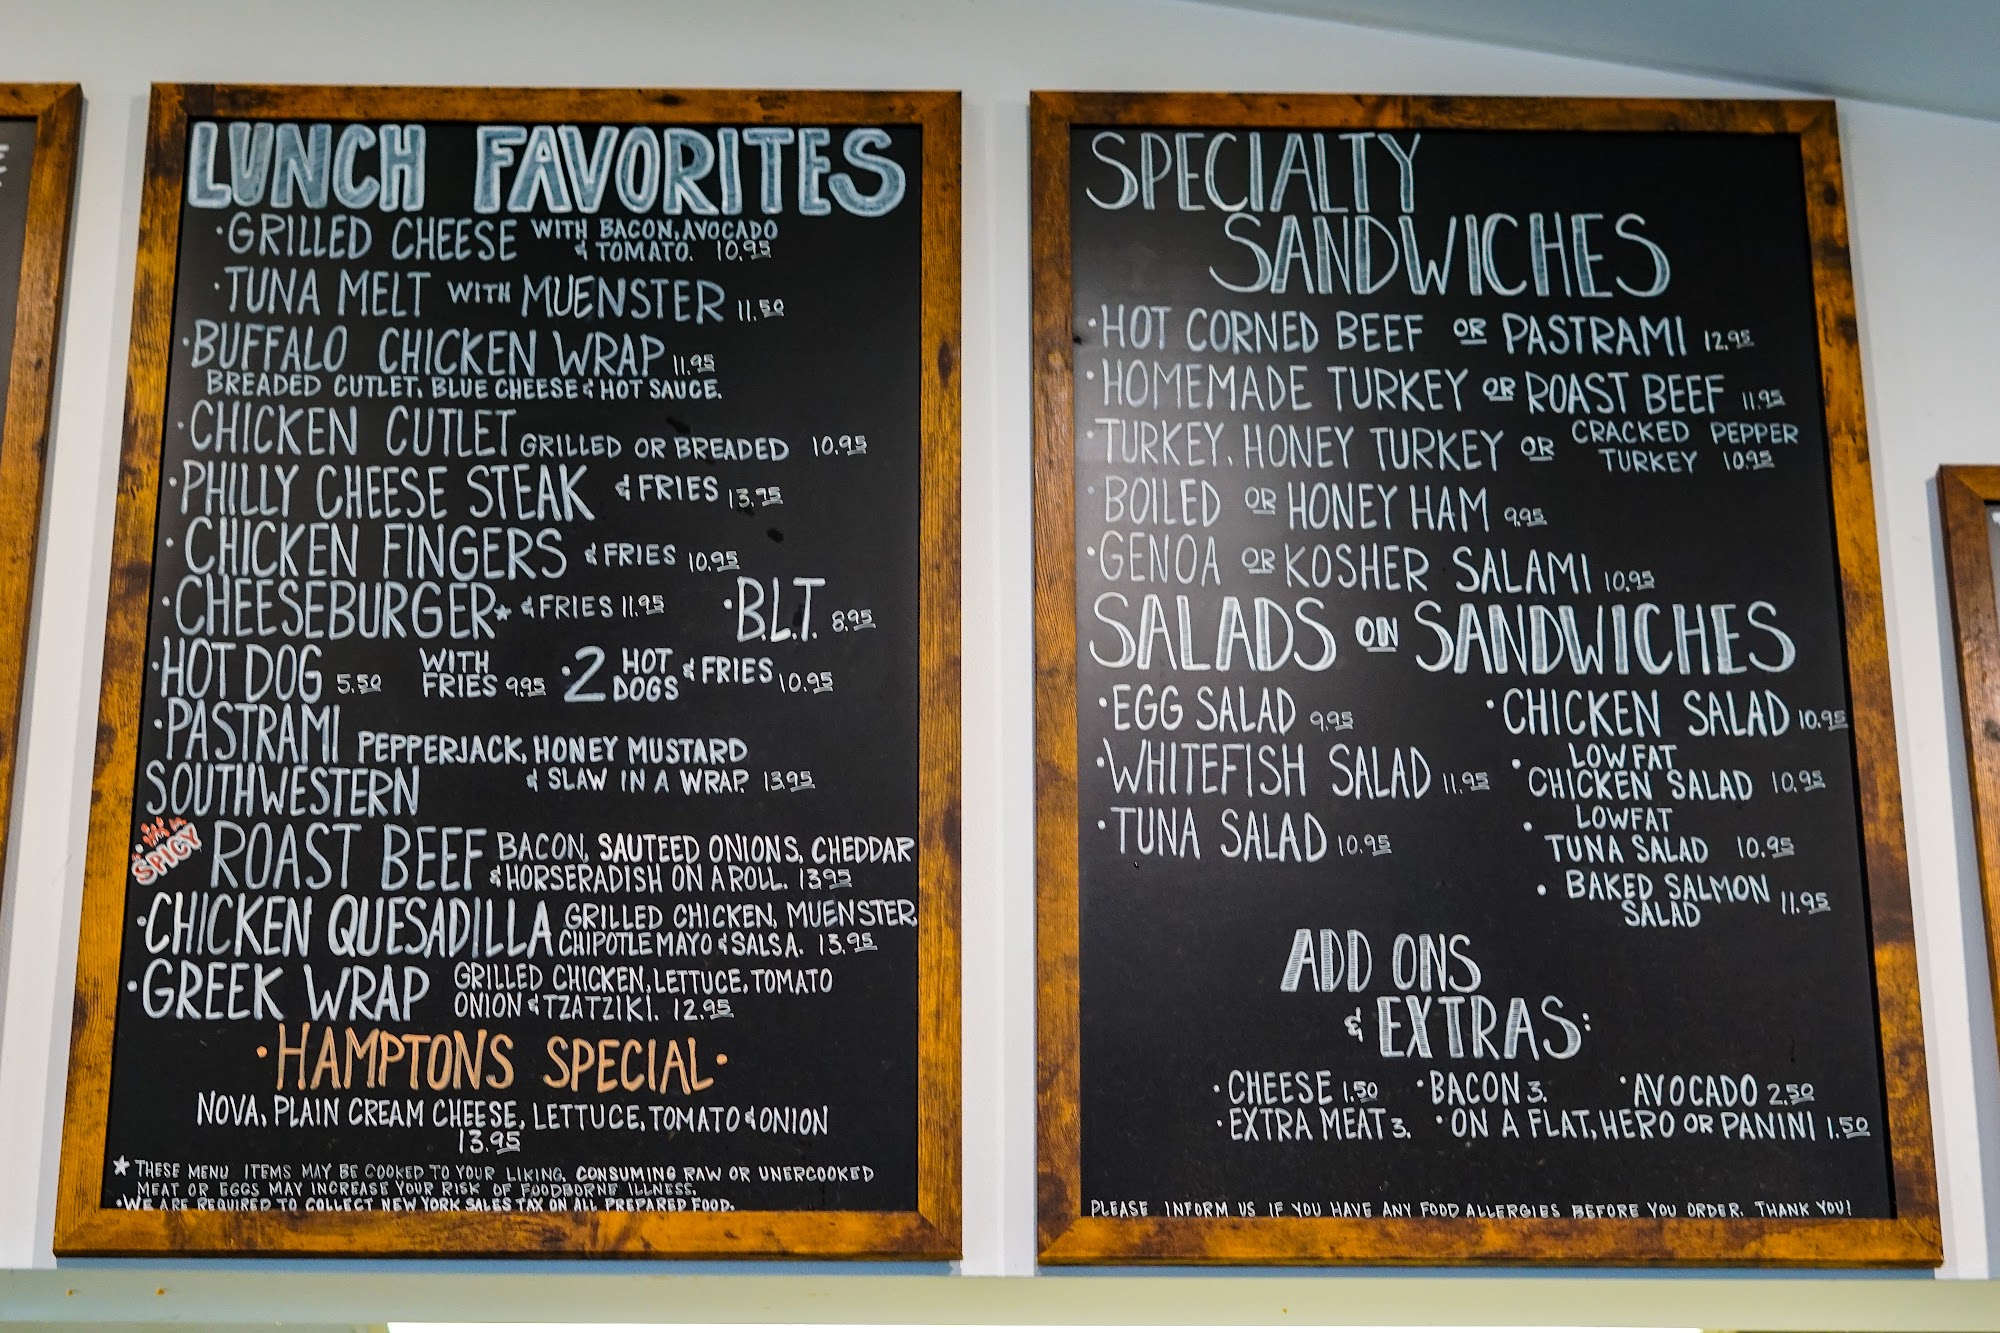 LUNCH FAVORITES
·GRILLED CHEESE WITH BACON, AVOCADO
& TOMATO. 10.95
·TUNA MELT WITH MUENSTER 11.50
·BUFFALO CHICKEN WRAP 11.95
BREADED CUTLET, BLUE CHEESE & HOT SAUCE.
·CHICKEN CUTLET GRILLED OR BREADED 10.95
·PHILLY CHEESE STEAK & FRIES 13.95
·CHICKEN FINGERS & FRIES 10.95
·CHEESEBURGER* & FRIES 11.95 ·B.L.T. 8.95
·HOT DOG 5.50 WITH FRIES 9.95 ·2 HOT DOGS & FRIES 10.95
·PASTRAMI PEPPERJACK, HONEY MUSTARD
& SLAW IN A WRAP. 13.95
SOUTHWESTERN
SPICY ROAST BEEF BACON, SAUTEED ONIONS, CHEDDAR
& HORSERADISH ON A ROLL. 13.95
·CHICKEN QUESADILLA GRILLED CHICKEN, MUENSTER,
CHIPOTLE MAYO & SALSA. 13.95
·GREEK WRAP GRILLED CHICKEN, LETTUCE, TOMATO
ONION & TZATZIKI. 12.95
·HAMPTONS SPECIAL·
NOVA, PLAIN CREAM CHEESE, LETTUCE, TOMATO & ONION
13.95
★ THESE MENU ITEMS MAY BE COOKED TO YOUR LIKING. CONSUMING RAW OR UNERCOOKED
MEAT OR EGGS MAY INCREASE YOUR RISK OF FOODBORNE ILLNESS.
·WE ARE REQUIRED TO COLLECT NEW YORK SALES TAX ON ALL PREPARED FOOD.
SPECIALTY
SANDWICHES
·HOT CORNED BEEF OR PASTRAMI 12.95
·HOMEMADE TURKEY OR ROAST BEEF 11.95
·TURKEY, HONEY TURKEY OR CRACKED PEPPER
TURKEY 10.95
·BOILED OR HONEY HAM 9.95
·GENOA OR KOSHER SALAMI 10.95
SALADS ON SANDWICHES
·EGG SALAD 9.95
·WHITEFISH SALAD 11.95
·TUNA SALAD 10.95
·CHICKEN SALAD 10.95
·LOWFAT
CHICKEN SALAD 10.95
·LOWFAT
TUNA SALAD 10.95
·BAKED SALMON
SALAD 11.95
ADD ONS
& EXTRAS:
·CHEESE 1.50 ·BACON 3. ·AVOCADO 2.50
·EXTRA MEAT 3. ·ON A FLAT, HERO OR PANINI 1.50
PLEASE INFORM US IF YOU HAVE ANY FOOD ALLERGIES BEFORE YOU ORDER. THANK YOU!